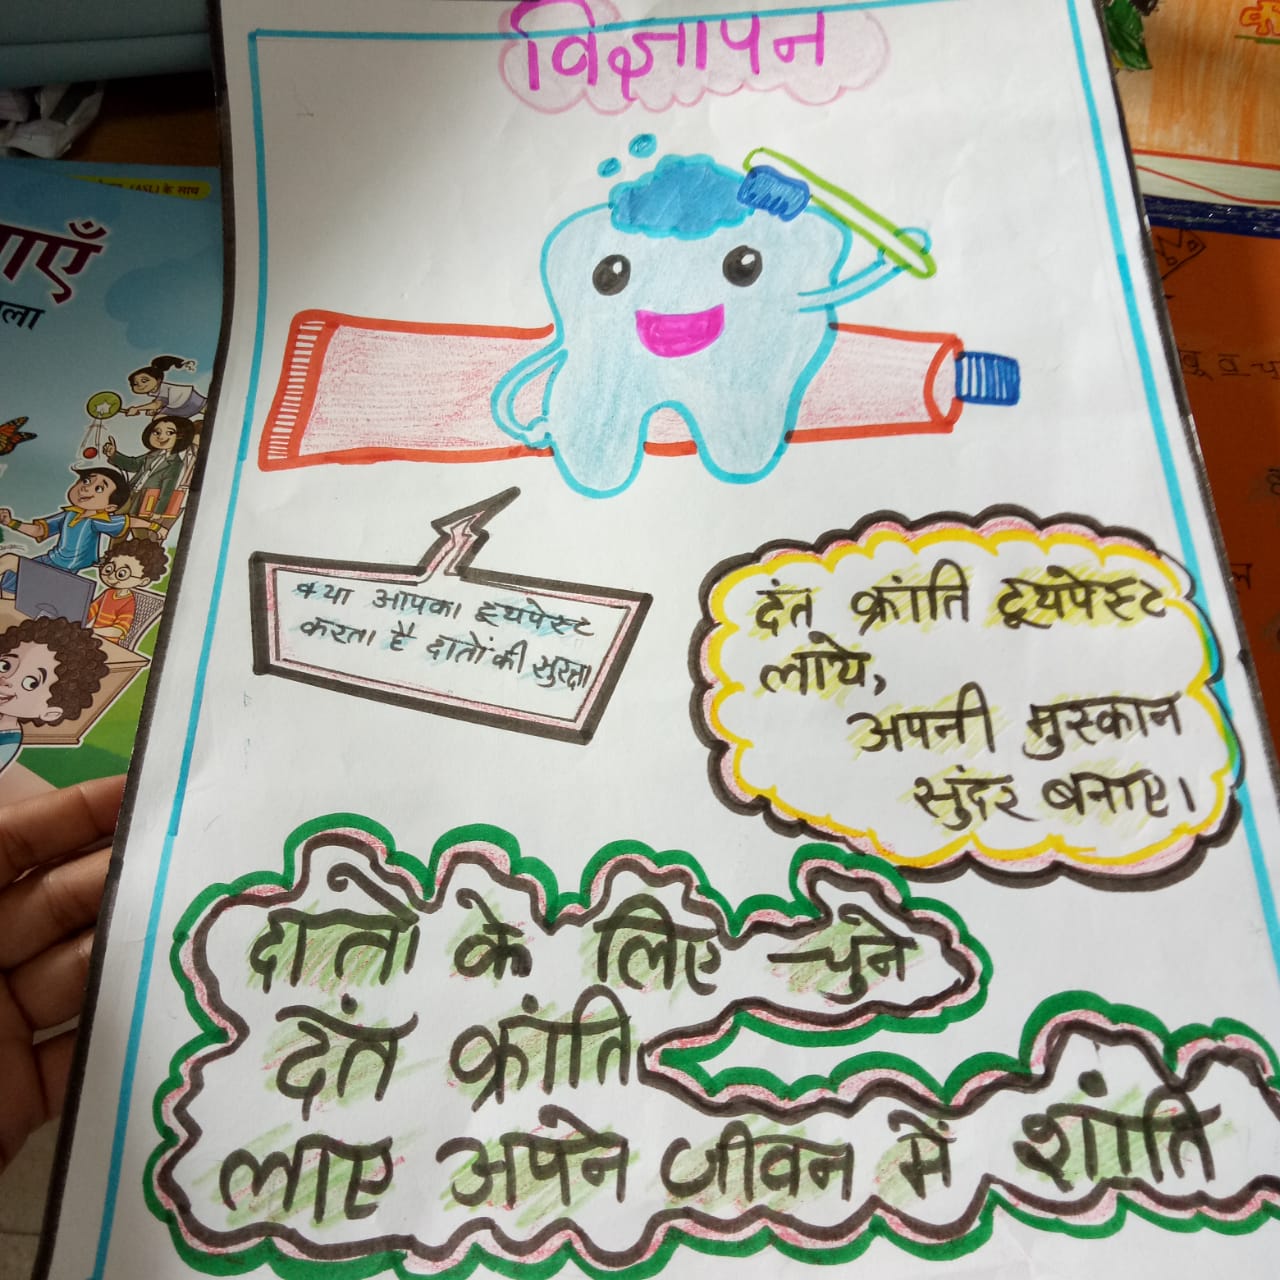 विज्ञापन
(ASL) के साथ
क्या आपका टूथपेस्ट
करता है दातों की सुरक्षा
दंत क्रांति टूथपेस्ट
लाये,
अपनी मुस्कान
सुंदर बनाए।
दातों के लिए चुने
दंत क्रांति
लाए अपने जीवन में शांति